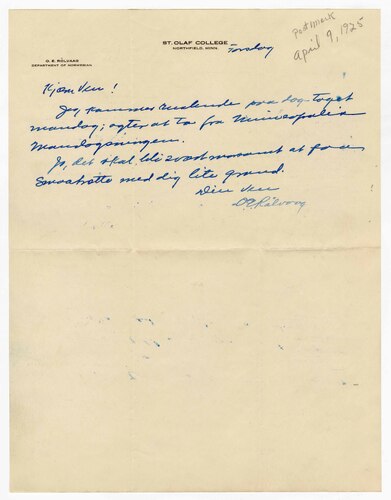 ST. OLAF COLLEGE
NORTHFIELD, MINN.
O. E. RÖLVAAG
DEPARTMENT OF NORWEGIAN
Postmark
April 9, 1925
Torsdag
Kjære Ven!
Jeg kommer ruslende paa dog toget
mandag; agter at ta fra Minneapolis
Mandagsmorgen.
Jo, det skal bli svært morsomt at faa en
Smaatratte med dig lite grand.
Din Ven
O E Rölvaag